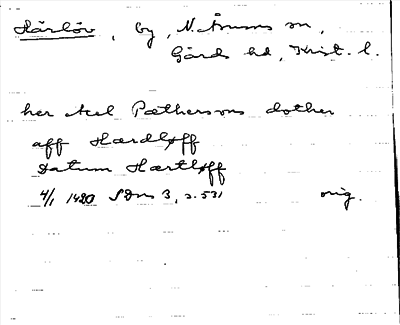 Härlöv, by, N. Åsums sn,
Gärds hd, Krist. l.
her Axel Pæthersons dother
aff Hærdløff
Datum Hærtløff
4/1 1420 SDns 3, s. 531 orig.